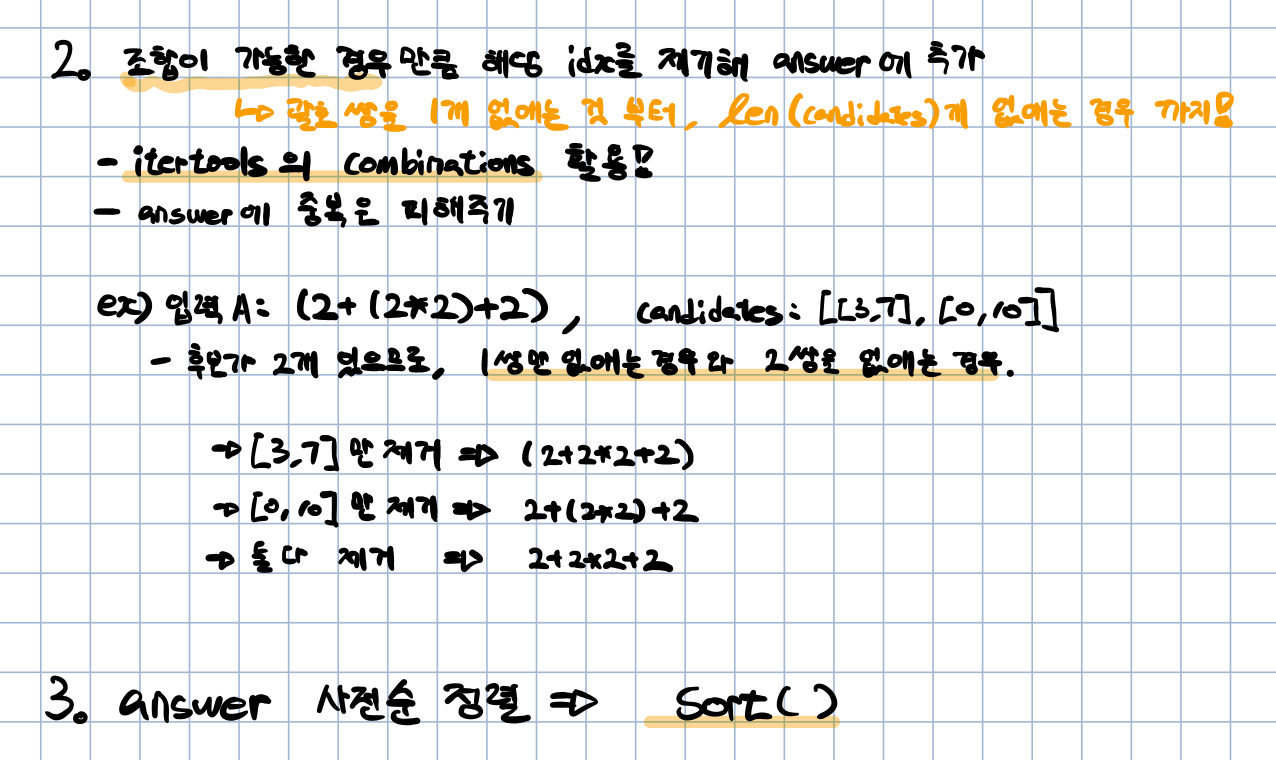 2. 조합이 가능한 경우 만큼 해당 idx를 제거해 answer에 추가
↳ 괄호 쌍을 1개 없애는 것 부터, len(candidates)개 없애는 경우 까지!
- itertools의 combinations 활용!
- answer에 중복은 피해주기
ex) 입력 A: (2+(2*2)+2), candidates: [[3,7], [0,10]]
- 후보가 2개 있으므로, 1쌍만 없애는 경우와 2쌍을 없애는 경우.
→ [3,7] 만 제거 => (2+2*2+2)
→ [0,10] 만 제거 => 2+(2*2)+2
→ 둘 다 제거 => 2+2*2+2
3. answer 사전순 정렬 => Sort()